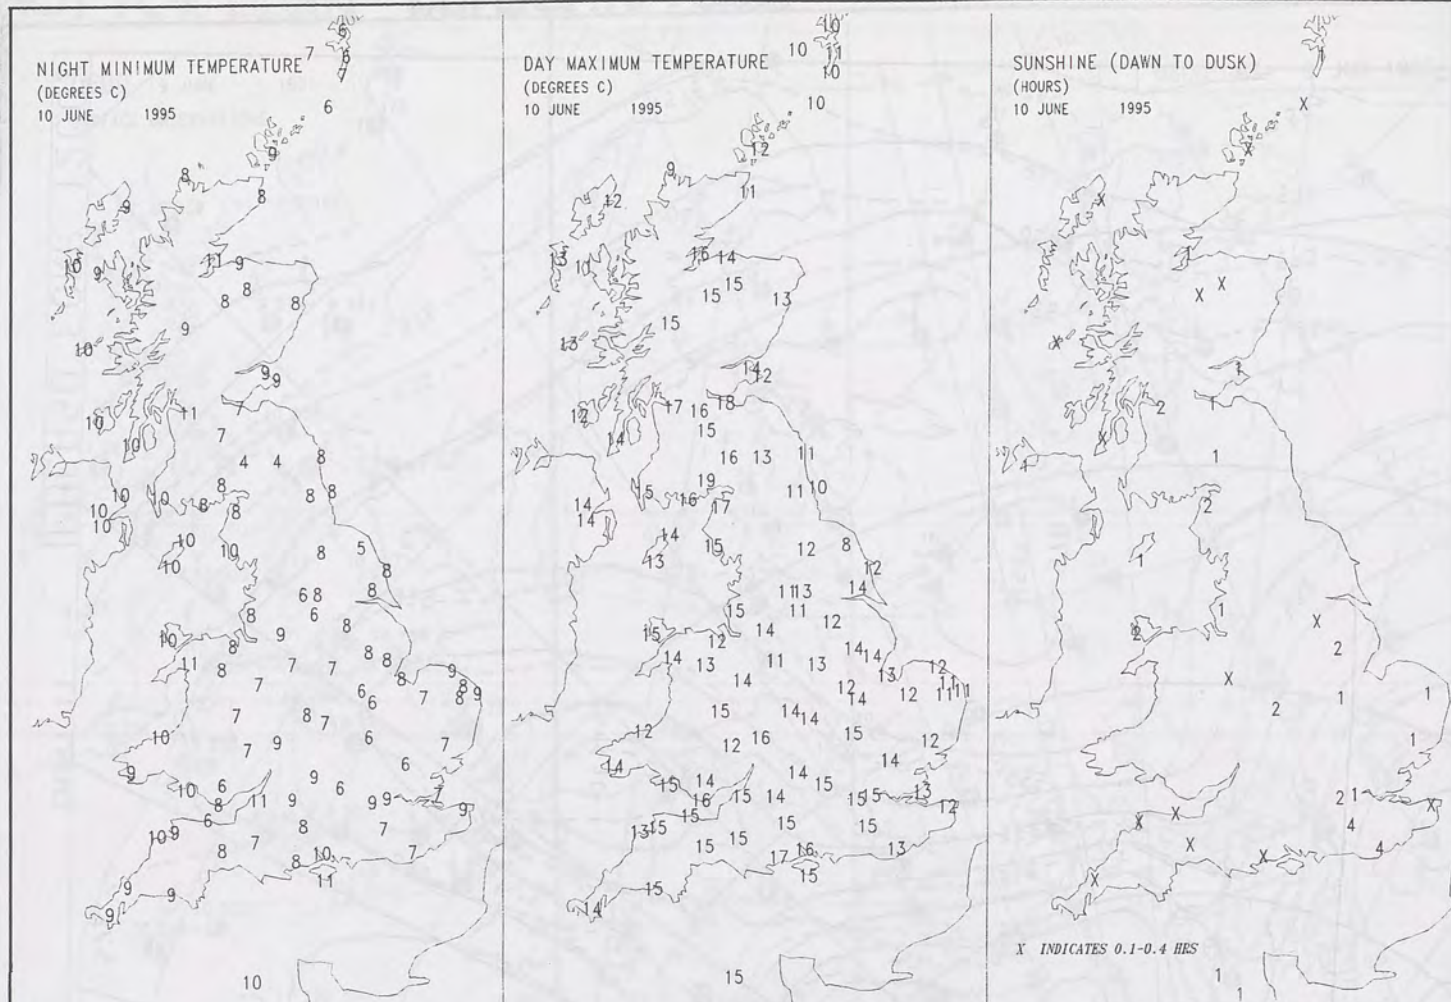 NIGHT MINIMUM TEMPERATURE
(DEGREES C)
10 JUNE 1995
6
7
6
7
6
9
8
8
9
10
9
11
9
8
8
8
9
10
9
9
7
11
10
10
7
4
4
8
8
10
10
8
8
8
8
10
10
10
10
10
8
5
8
8
6
8
6
8
8
9
10
8
11
8
7
7
8
8
8
9
8
9
8
7
6
6
7
8
7
6
10
7
9
7
9
6
10
6
8
11
9
9
6
9
9
7
9
6
9
10
8
7
8
10
8
7
7
11
9
9
9
10
DAY MAXIMUM TEMPERATURE
(DEGREES C)
10 JUNE 1995
10
10
11
10
10
12
9
11
12
13
10
16
14
15
15
13
15
13
14
12
12
17
16
18
14
15
16
13
11
19
15
16
17
11
10
14
14
14
13
15
12
8
12
14
11
13
11
15
12
15
12
14
14
13
11
13
14
14
13
12
14
12
14
12
11
11
11
11
15
14
14
12
12
16
15
12
14
15
14
16
15
14
14
15
15
15
14
13
12
13
15
15
15
15
15
15
17
16
15
13
15
14
15
SUNSHINE (DAWN TO DUSK)
(HOURS)
10 JUNE 1995
1
X
X
X
1
X
X
X
1
2
1
X
1
1
2
1
1
2
X
2
X
2
1
1
1
2
1
X
4
4
X
X
X
X
X
1
1
X INDICATES 0.1-0.4 HRS